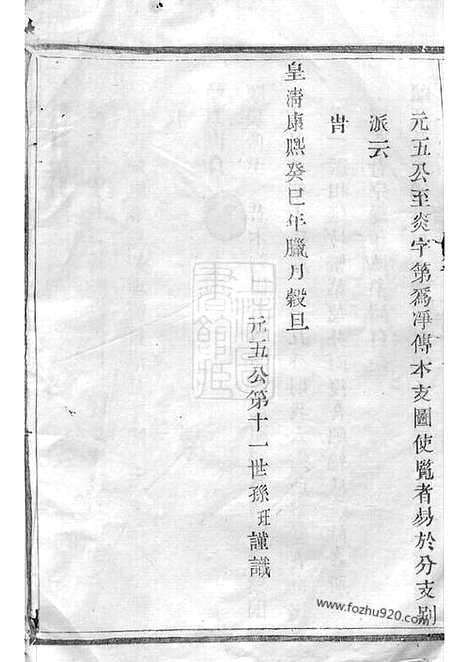 元五公至炎字第為淨傳本支圖使覽者易於分支別
派云
旹
皇清康熙癸巳年臘月穀旦
元五公第十一世孫珏謹識
上海圖書館藏
www.fozhu920.com